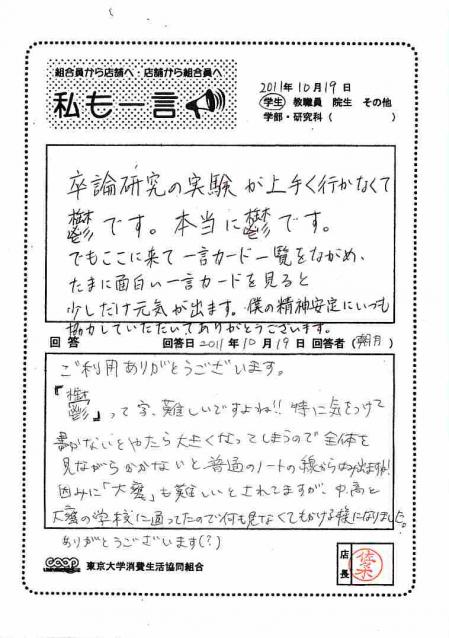 組合員から店舗へ・店舗から組合員へ
私も一言
2011年10月19日
学生 教職員 院生 その他
学部・研究科( )
卒論研究の実験が上手く行かなくて
鬱です。本当に鬱です。
でもここに来て一言カード一覧をながめ、
たまに面白い一言カードを見ると
少しだけ元気が出ます。僕の精神安定にいつも
協力していただいてありがとうございます。
回答 回答日2011年10月19日 回答者(朝月)
ご利用ありがとうございます。
『鬱』って字、難しいですよね!! 特に気をつけて
書かないとやたら大きくなってしまうので全体を
見ながらかかないと普通のノートの線からはみ出ますよね!
因みに「大甕」も難しいとされてますが、中、高と
大甕の学校に通ってたので何も見なくてもかける様になりました。
ありがとうございます(?)
coop 東京大学消費生活協同組合
店長